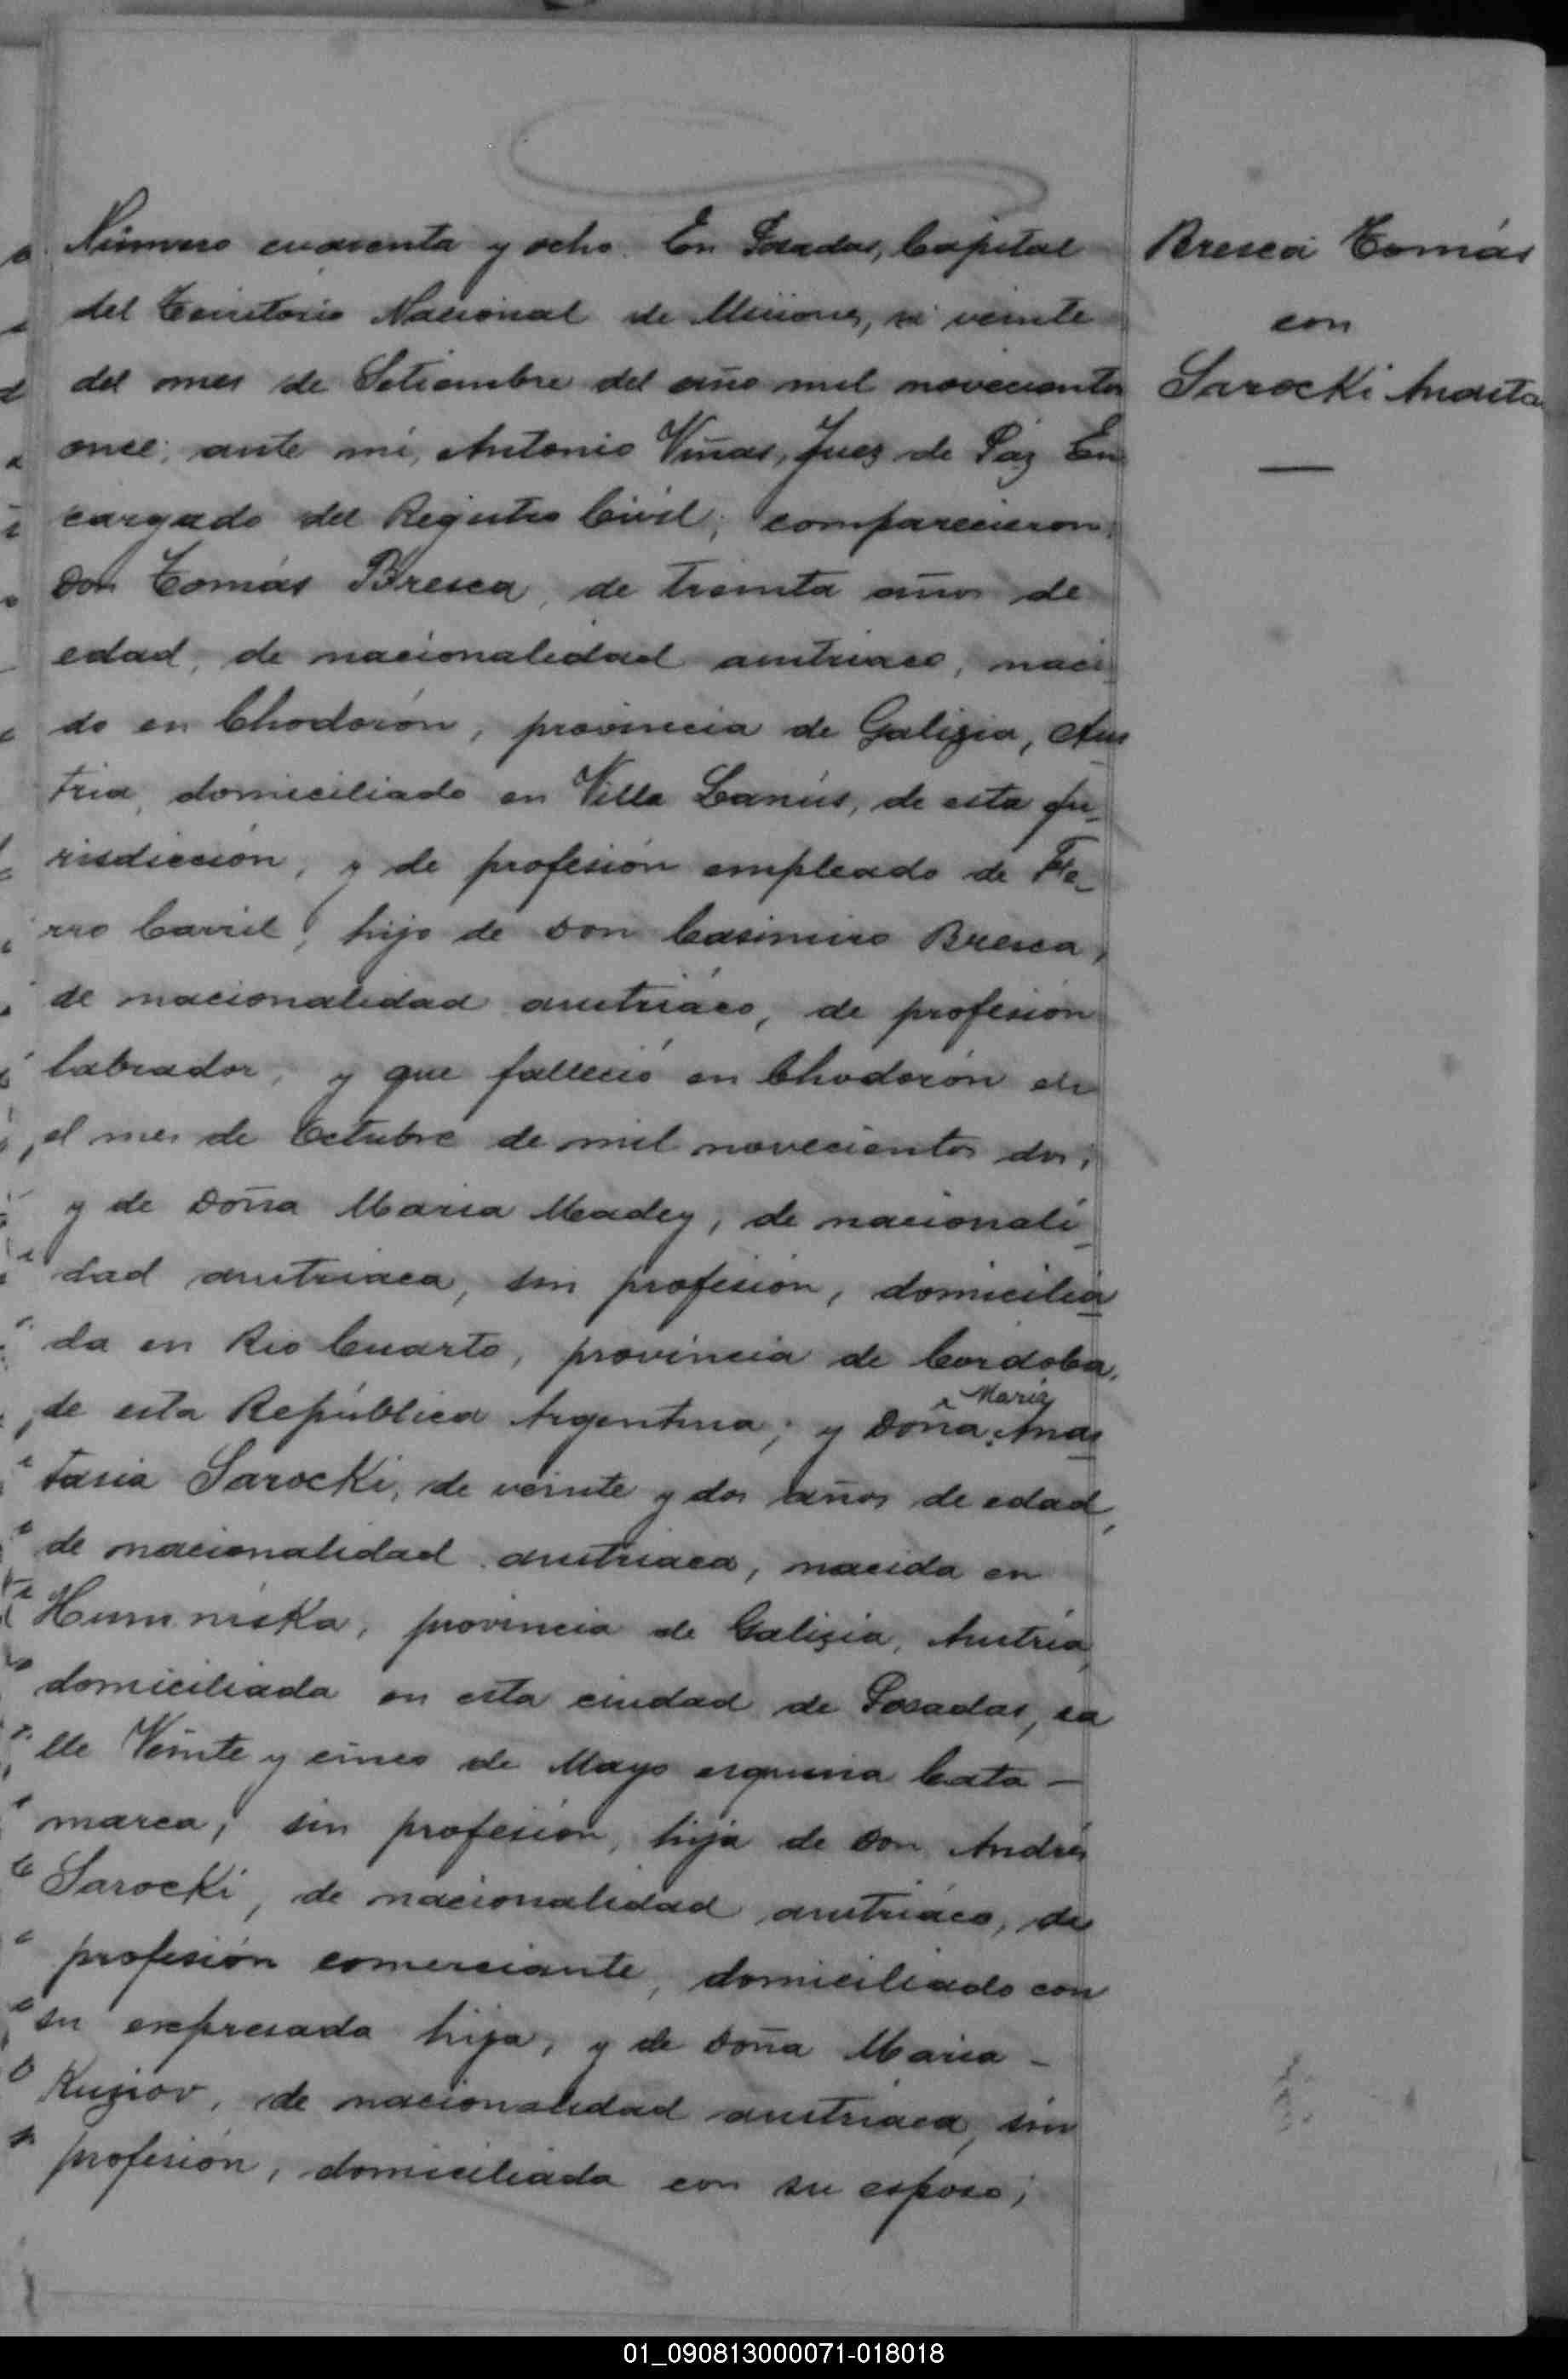 Número cuarenta y ocho. En Posadas, Capital
del Territorio Nacional de Misiones, á veinte
del mes de Setiembre del año mil novecientos
once; ante mí, Antonio Viñas, Juez de Paz En
cargado del Registro Civil; comparecieron:
Don Tomás Bresca, de treinta años de
edad, de nacionalidad austriaco, naci_
do en Chodorón, provincia de Galizia, Aus_
tria, domiciliado en Villa Lanús, de esta ju_
risdicción, y de profesión empleado de Fe_
rro Carril, hijo de Don Casimiro Bresca,
de nacionalidad austriáco, de profesión
labrador, y que falleció en Chodorón en
el mes de Octubre de mil novecientos dos;
y de Doña Maria Madey, de nacionali_
dad austriaca, sin profesión, domicilia_
da en Rio Cuarto, provincia de Cordoba,
de esta República Argentina; y Doña María Anas_
tasia Sarocki, de veinte y dos años de edad,
de nacionalidad austriaca, nacida en
Humniska, provincia de Galizia, Austria,
domiciliada en esta ciudad de Posadas, ca
lle Veinte y cinco de Mayo esquina Cata—
marca, sin profesión, hija de Don Andrés
Sarocki, de nacionalidad austriáco, de
profesión comerciante, domiciliado con
su expresada hija, y de Doña Maria –
Kuziov, de nacionalidad austriaca, sin
profesión, domiciliada con su esposo;
Bresca Tomás
con
Sarocki Anasta
01_090813000071-018018